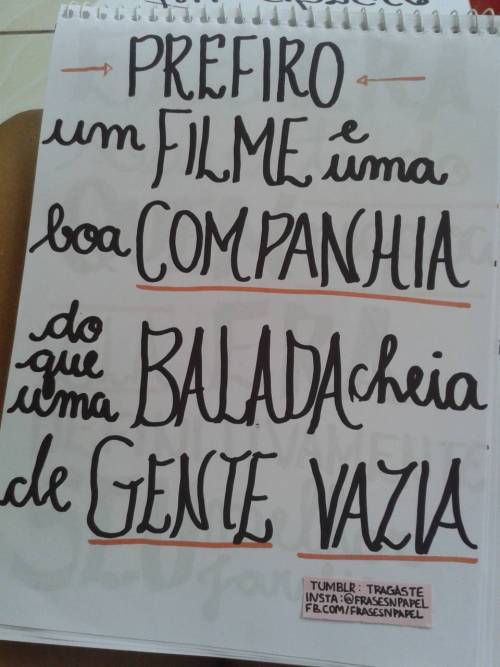 PREFIRO
um FILME e uma
boa COMPANHIA
do que uma BALADA cheia
de GENTE VAZIA
TUMBLR: TRAGASTE
INSTA: @FRASESNPAPEL
FB.COM/FRASESNPAPEL